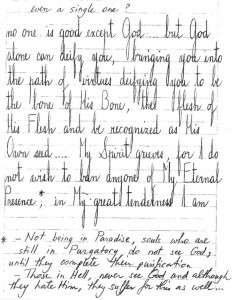 even a single one?
no one is good except God... but God
alone can deify you, bringing you into
the path of virtues deifying you to be
the bone of His Bone, the flesh of
His Flesh and be recognized as His
Own seed.... My Spirit grieves, for I do
not wish to ban anyone of My Eternal
Presence;* in My great tenderness I am
* - Not being in Paradise, souls who are
still in Purgatory do not see God,
until they complete their purification
- Those in Hell, never see God and although
they hate Him, they suffer for this as well...